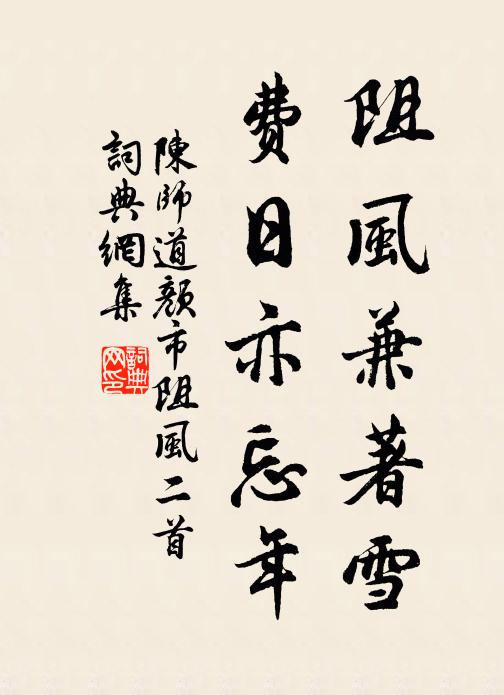 阻風兼著雪
費日亦忘年
陳師道顏市阻風二首
詞典網集
詞典网印